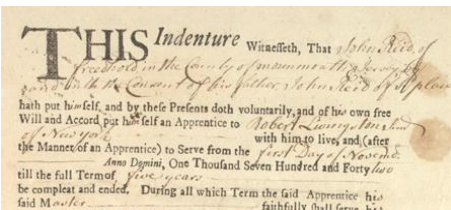 THIS Indenture Witnesseth, That John Reid of
freehold in the County of monmouth Jersey by
and with the Consent of his father, John Reid of S place
hath put himself, and by these Presents doth voluntarily, and of his own free
Will and Accord put himself an Apprentice to Robert Livingston Jun
of New York with him to live, and (after
the Manner of an Apprentice) to Serve from the first Day of Novem
Anno Domini, One Thousand Seven Hundred and Forty two
till the full Term of five years
be compleat and ended. During all which Term the said Apprentice his
said Master faithfully shall serve his